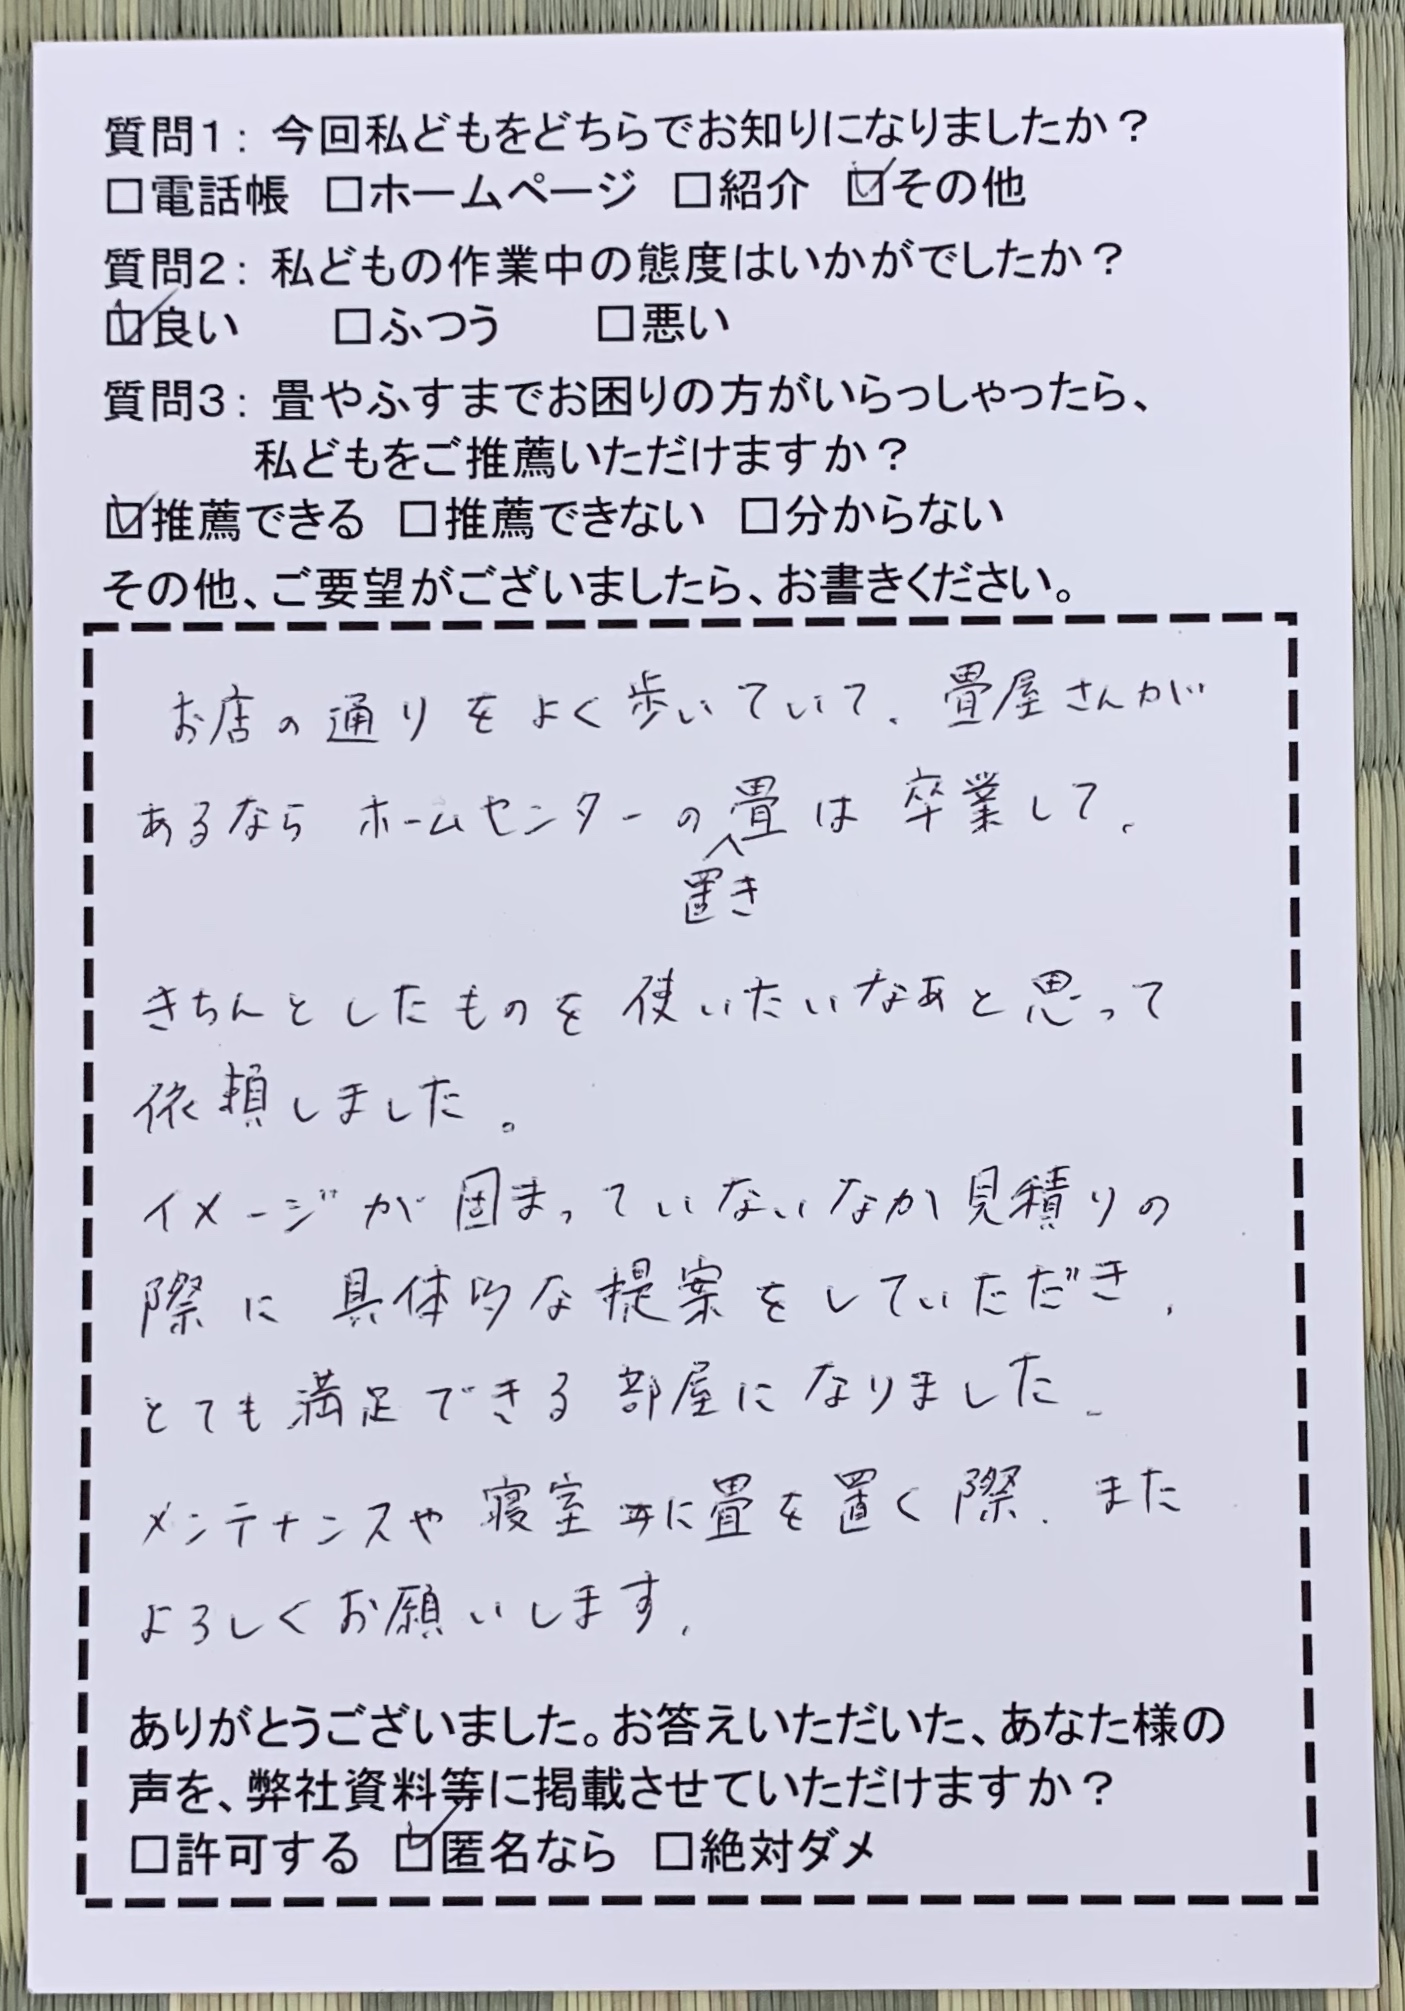 質問1：今回私どもをどちらでお知りになりましたか？
□電話帳 □ホームページ □紹介 ☑その他
質問2：私どもの作業中の態度はいかがでしたか？
☑良い □ふつう □悪い
質問3：畳やふすまでお困りの方がいらっしゃったら、
私どもをご推薦いただけますか？
☑推薦できる □推薦できない □分からない
その他、ご要望がございましたら、お書きください。
お店の通りをよく歩いていて、畳屋さんが
あるなら ホームセンターの畳は 卒業して、
置き
きちんとしたものを使いたいなあと思って
依頼しました。
イメージが固まっていないなか見積りの
際に具体的な提案をしていただき、
とても満足できる部屋になりました。
メンテナンスや寝室に畳を置く際、また
よろしくお願いします。
ありがとうございました。お答えいただいた、あなた様の
声を、弊社資料等に掲載させていただけますか？
□許可する ☑匿名なら □絶対ダメ